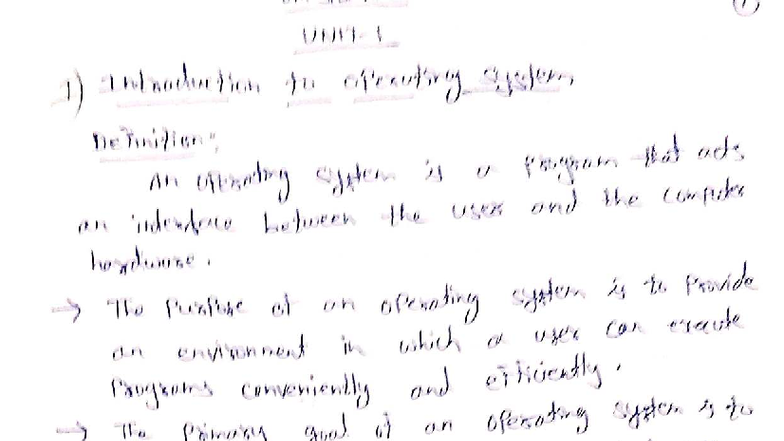 UNIT-1
1) Introduction to operating system
Definition:
An operating system is a program that acts
an interface between the user and the computer
hardware.
→ The Purpose of an operating system is to Provide
an environment in which a user can execute
Programs conveniently and efficiently.
→ The Primary goal of an operating system is to